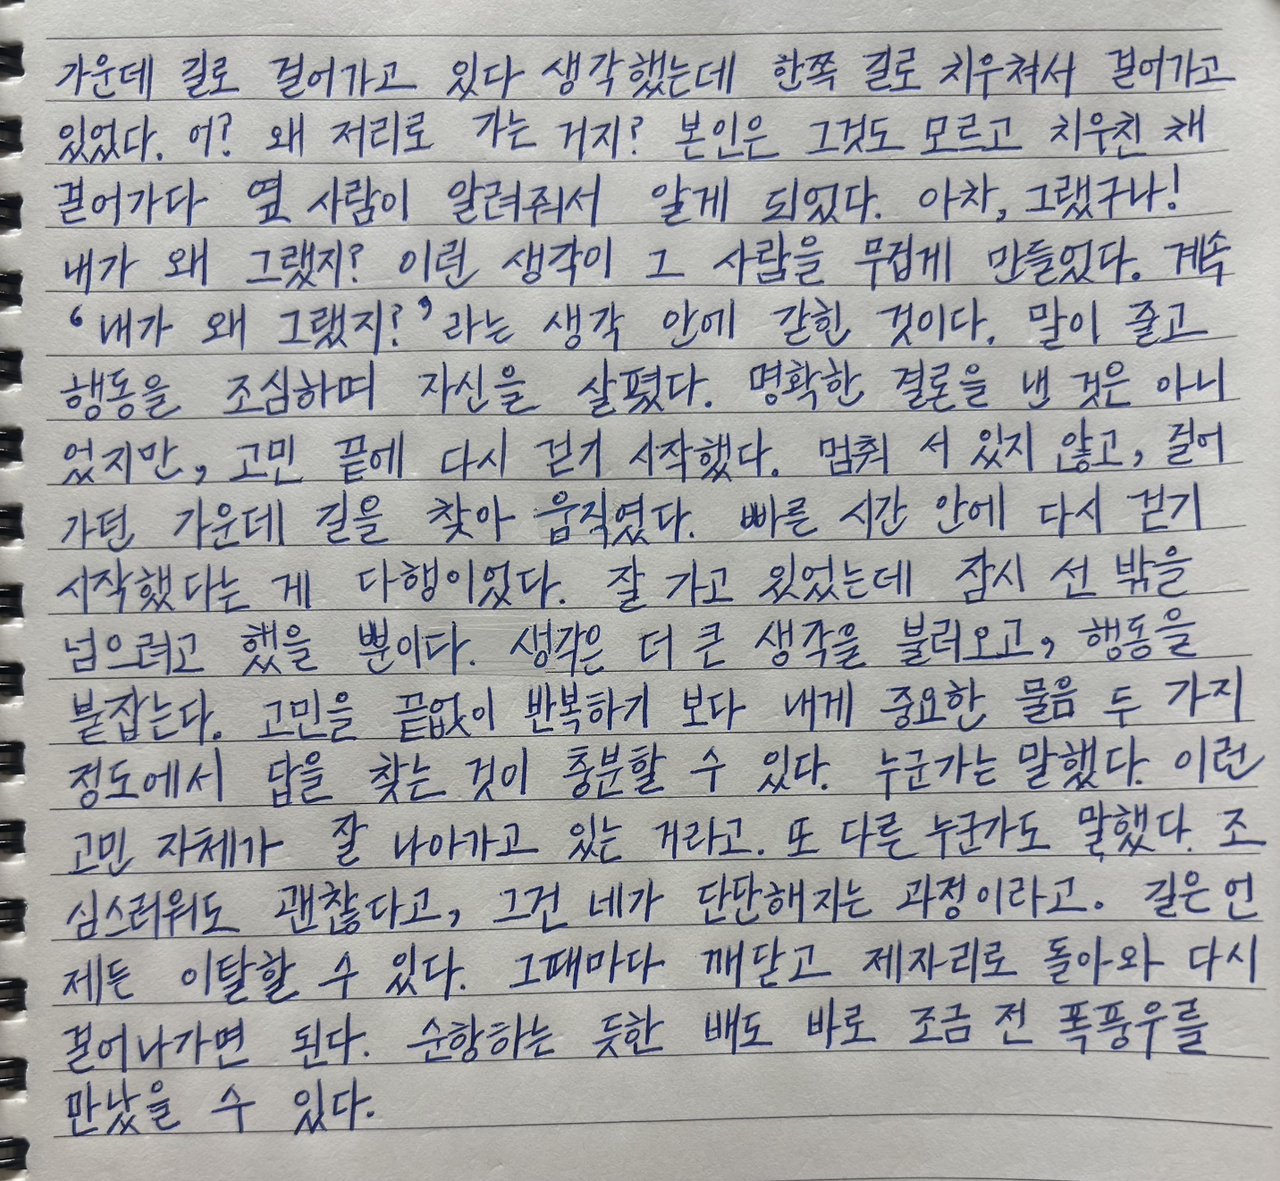 가운데 길로 걸어가고 있다 생각했는데 한쪽 길로 치우쳐서 걸어가고
있었다. 어? 왜 저리로 가는 거지? 본인은 그것도 모르고 치우친 채
걸어가다 옆 사람이 알려줘서 알게 되었다. 아차, 그랬구나!
내가 왜 그랬지? 이런 생각이 그 사람을 무겁게 만들었다. 계속
'내가 왜 그랬지?'라는 생각 안에 갇힌 것이다. 말이 줄고
행동을 조심하며 자신을 살폈다. 명확한 결론을 낸 것은 아니
었지만, 고민 끝에 다시 걷기 시작했다. 멈춰 서 있지 않고, 걸어
가던 가운데 길을 찾아 움직였다. 빠른 시간 안에 다시 걷기
시작했다는 게 다행이었다. 잘 가고 있었는데 잠시 선 밖을
넘으려고 했을 뿐이다. 생각은 더 큰 생각을 불러오고, 행동을
붙잡는다. 고민을 끝없이 반복하기 보다 내게 중요한 물음 두 가지
정도에서 답을 찾는 것이 충분할 수 있다. 누군가는 말했다. 이런
고민 자체가 잘 나아가고 있는 거라고. 또 다른 누군가도 말했다. 조
심스러워도 괜찮다고, 그건 네가 단단해지는 과정이라고. 길은 언
제든 이탈할 수 있다. 그때마다 깨닫고 제자리로 돌아와 다시
걸어나가면 된다. 순항하는 듯한 배도 바로 조금 전 폭풍우를
만났을 수 있다.